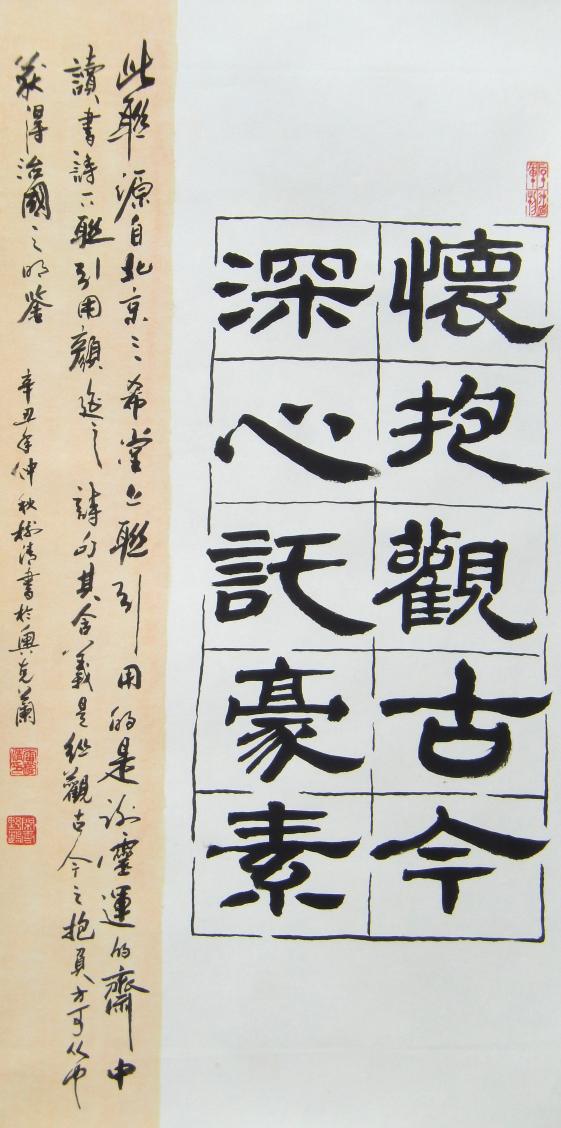 懷抱觀古今
深心託豪素
此聯源自北京三希堂上聯引用的是謝靈運的齋中
讀書詩下聯引用顏延之詩句其含義是縱觀古今之抱負方可從中
獲得治國之明鑒
辛丑年仲秋 清書於奧克蘭